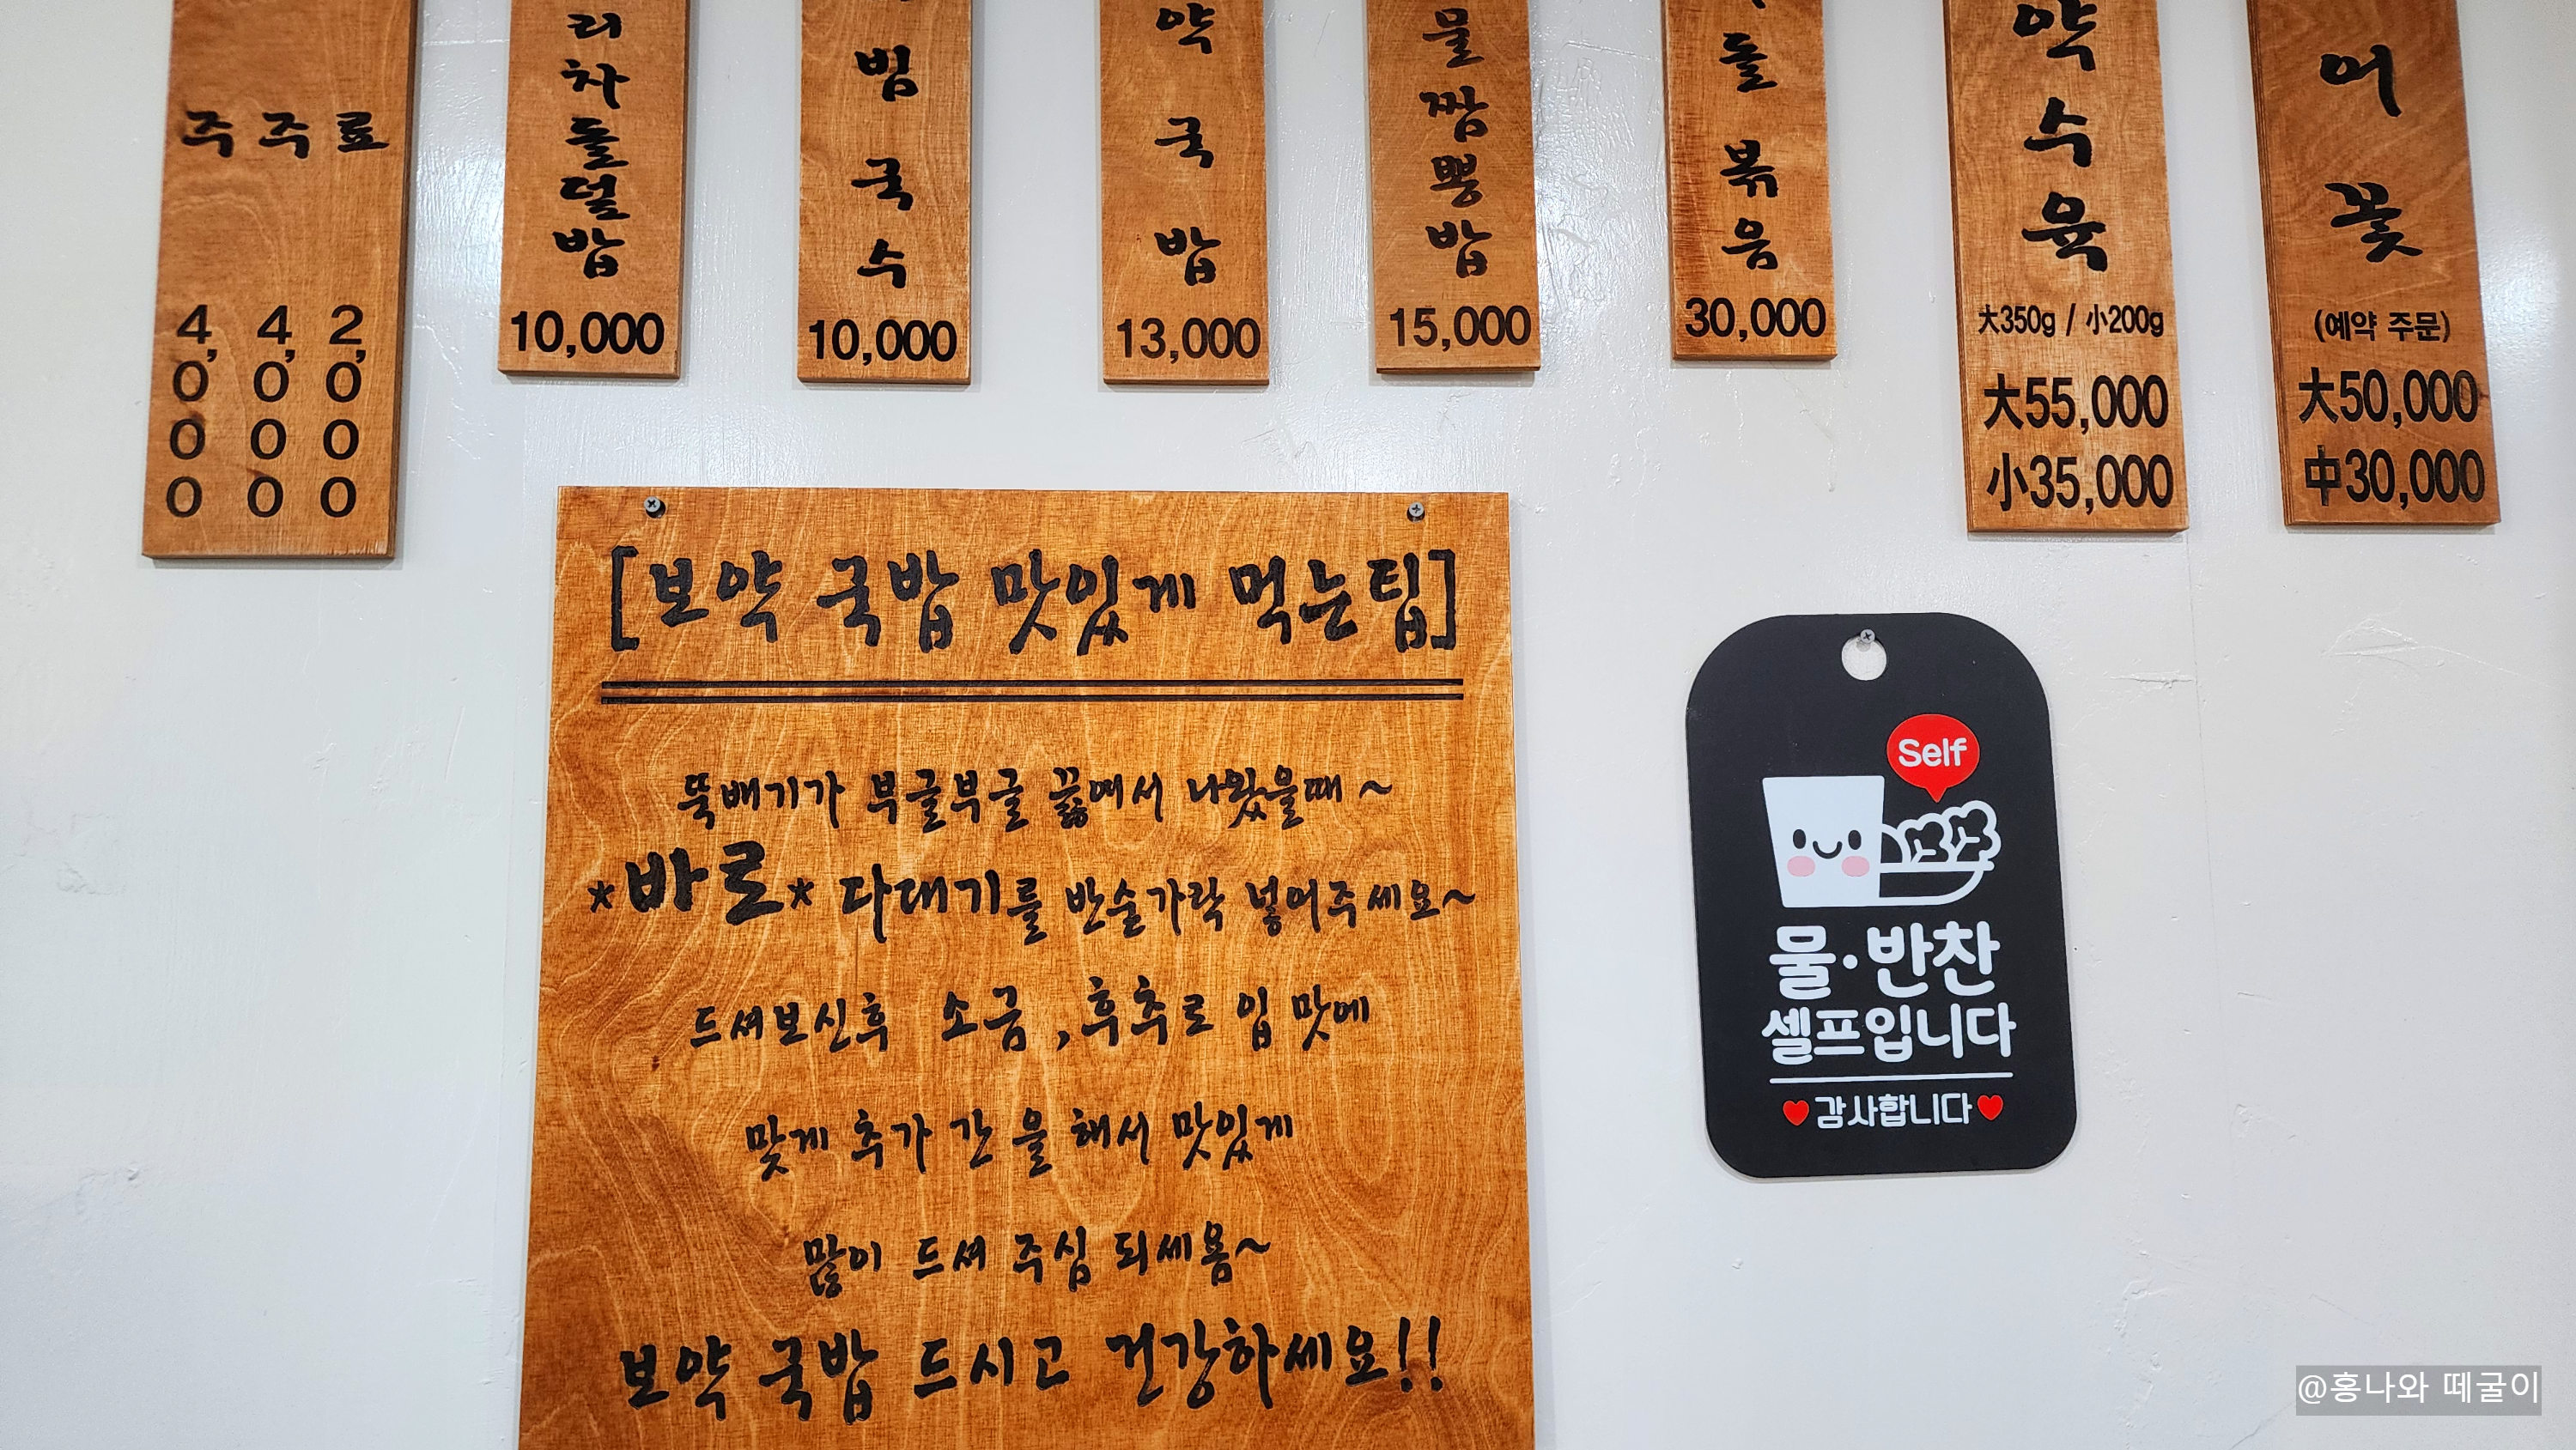 주 주 료
4,000 4,000 2,000
리차돌덮밥
10,000
빔국수
10,000
약국밥
13,000
물짬뽕밥
15,000
돌볶음
30,000
약수육
大350g / 小200g
大55,000
小35,000
어꽃
(예약 주문)
大50,000
中30,000
[보약 국밥 맛있게 먹는팁]
뚝배기가 부글부글 끓여서 나왔을때~
*바로* 다대기를 반술가락 넣어주세요~
드셔보신후 소금,후추로 입 맛에
맞게 추가 간을 해서 맛있게
많이 드셔 주심 되세욤~
보약 국밥 드시고 건강하세요!!
Self
물·반찬
셀프입니다
감사합니다
@홍나와 떼굴이